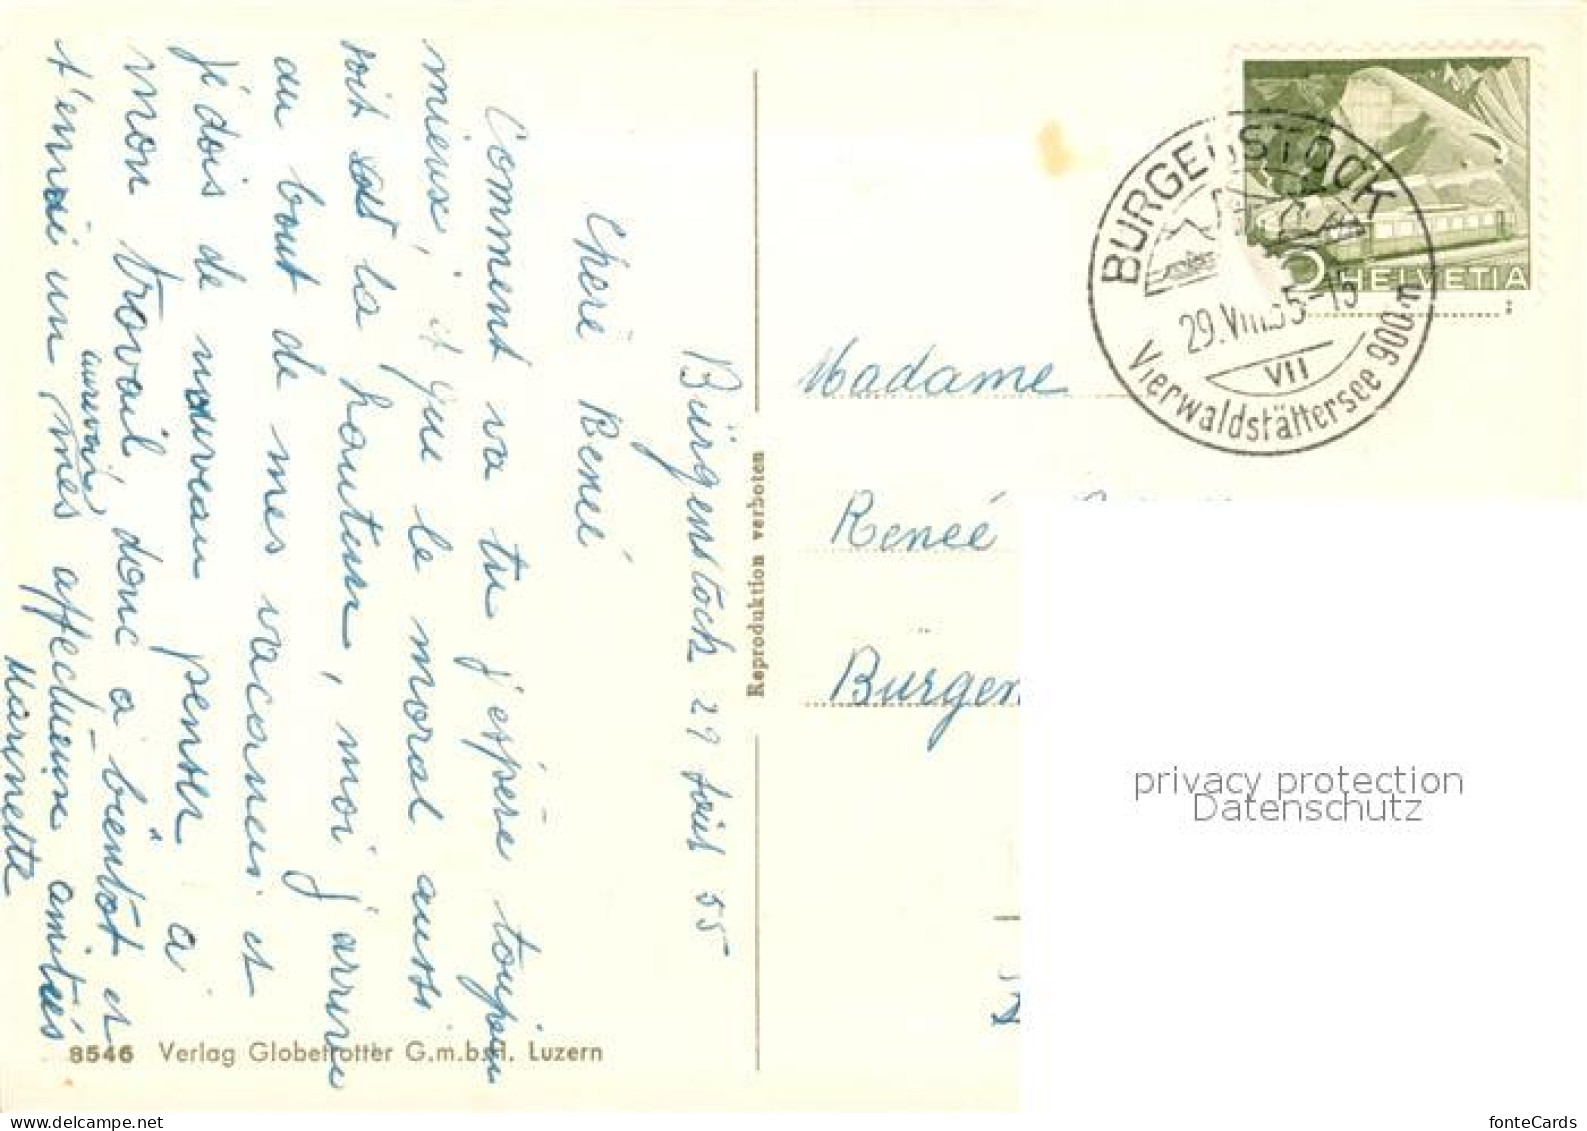 Bürgenstock 29 Août 55
Chère Reneé
Comment va tu j'espère toujour
mieux, et que le moral aussi
soit est la hauteur, moi j'arrive
au bout de mes vacances et
je dois de nouveau penser a
mon travail donc a bientôt et
aurevoir
t'envoie un mes affectueux amitiés
Marinette
Reproduktion verboten
8546 Verlag Globetrotter G.m.b.H. Luzern
HELVETIA
5
BÜRGENSTOCK
29.VIII.55-15
VII
Vierwaldstättersee 900 m
Madame
Reneé
Bürgen
privacy protection
Datenschutz
fonteCards